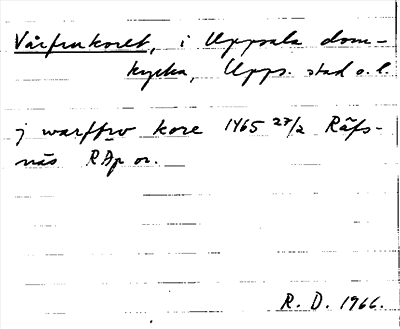 Vårfrukoret, i Uppsala dom-
kyrka, Upps. stad o. l.
j warffrv kore 1465 27/2 Räfs-
näs RAp or.
R. D. 1966.